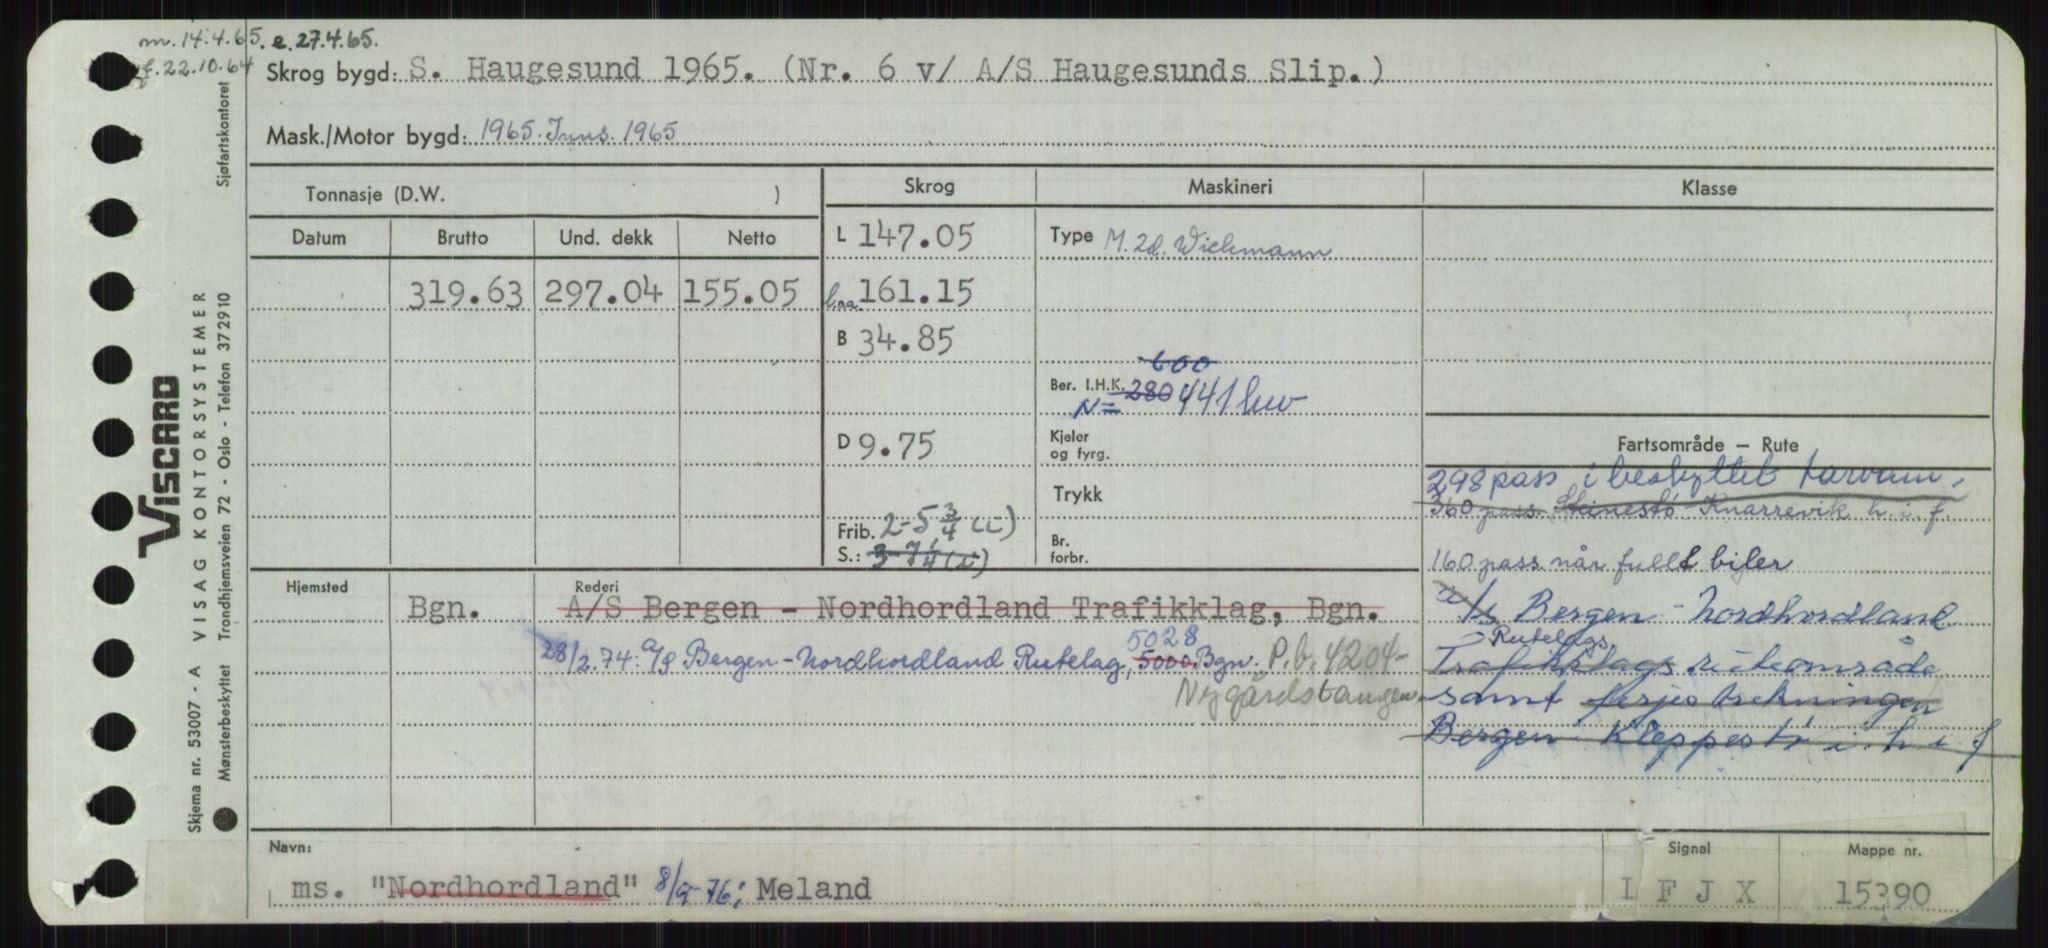 m. 14.4.65. e. 27.4.65.
f. 22.10.64
Skrog bygd: S. Haugesund 1965. (Nr. 6 v/ A/S Haugesunds Slip.)
Mask./Motor bygd: 1965. Inns. 1965
Tonnasje (D.W. )
Skrog
Maskineri
Klasse
Datum
Brutto
Und. dekk
Netto
L 147.05
Type M. 2d. Wichmann
319.63 297.04 155.05
l.aa. 161.15
B 34.85
600
Ber. I.H.K. 280 441 hw
N=
D 9.75
Kjeler
og fyrg.
Trykk
Frib. 2-5 3/4 (i)
S.: 3-7 1/4 (i)
Br.
forbr.
Fartsområde – Rute
298 pass i beskyttet farvann.
360 pass. Steinestø-Knarrevik h. i f.
160 pass når fullt biler
a/s Bergen - Nordhordland
Rutelags
Trafikklags ruteområde
samt ferjestrekningen
Bergen - Kleppestø i h i f
Hjemsted
Rederi
Bgn. A/S Bergen - Nordhordland Trafikklag, Bgn.
5028
28/2.74: a/s Bergen-Nordhordland Rutelag, 5000 Bgn. P.b. 4204-
Nygårdstangen
Navn:
ms. "Nordhordland" 8/9-76: Meland
Signal
I F J X
Mappe nr.
15390
Sjøfartskontoret
VISCARD
VISAG KONTORSYSTEMER
Trondhjemsveien 72 - Oslo - Telefon 372910
Skjema nr. 53007 - A
Mønsterbeskyttet